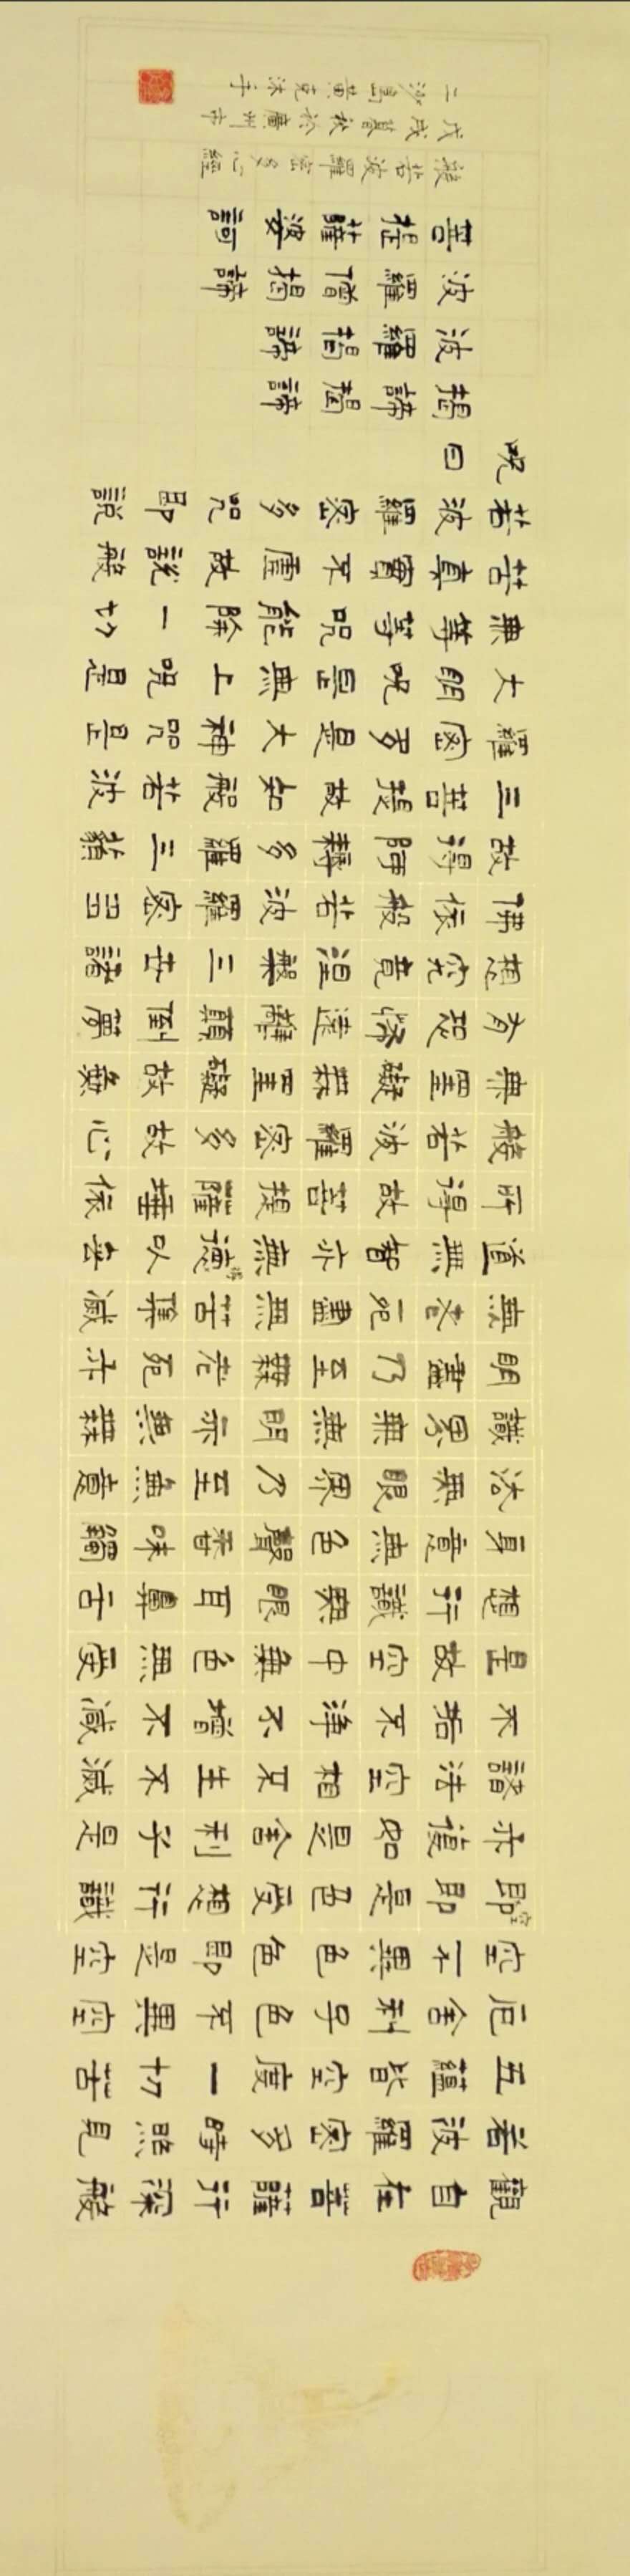 觀自在菩薩行深般
若波羅密多時照見
五蘊皆空度一切苦
厄舍利子色不異空
空不異色色即是空
空即即是色受想行識
亦復如是舍利子是
諸法空相不生不滅
不垢不淨不增不減
是故空中無色無受
想行識無眼耳鼻舌
身意無色聲香味觸
法無眼界乃至無意
識界無無明亦無無
明盡乃至無老死亦
無老死盡無苦集滅
道無智亦無德得以無
所得故菩提薩埵依
般若波羅密多故心
無罣礙無罣礙故無
有恐怖遠離顛倒夢
想究竟涅槃三世諸
佛依般若波羅密多
故得阿耨多羅三藐
三菩提故知般若波
羅密多是大神咒是
大明咒是無上咒是
無等等咒能除一切
苦真實不虛故說般
若波羅密多咒即說
咒曰
揭諦揭諦
波羅揭諦
波羅僧揭諦
菩提薩婆訶
般若波羅密多心經
戊戌暮秋於廣州市
二沙島黃克沐手